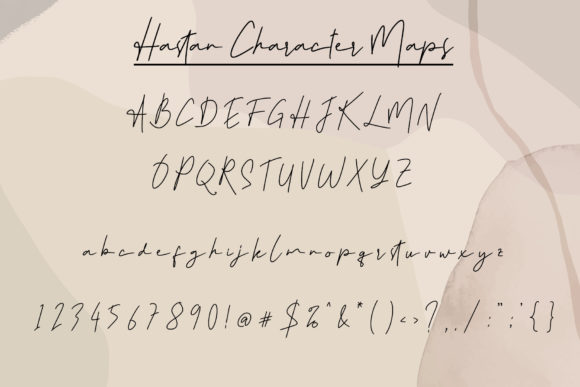 Hastan Character Maps
ABCDEFGHIJKLMN
OPQRSTUVWXYZ
abcdefghijklmnopqrstuvwxyz
1234567890!@#$%^&*()<>?,./:";'{}